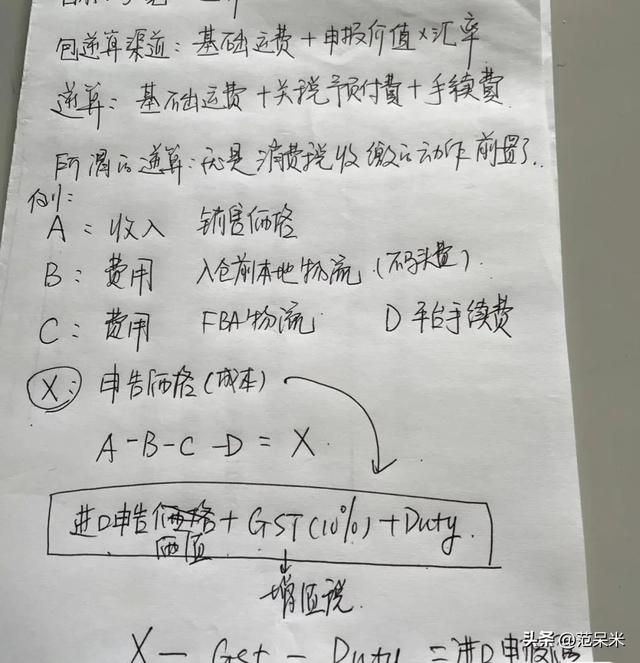 包逆算渠道：基础运费+申报价值×汇率
逆算：基础运费+关税预付费+手续费
所谓的逆算：就是消费税收缴的动作前置了.
例：
A：收入 销售価格
B：费用 入仓前本地物流（码头费）.
C：费用 FBA物流 D 平台手续费
X：申告価格（成本）
A-B-C-D=X.
进口申告価格+GST(10%)+Duty.
価值
增值税
X - Gst - Duty =进口申报価
头条 @范呆米